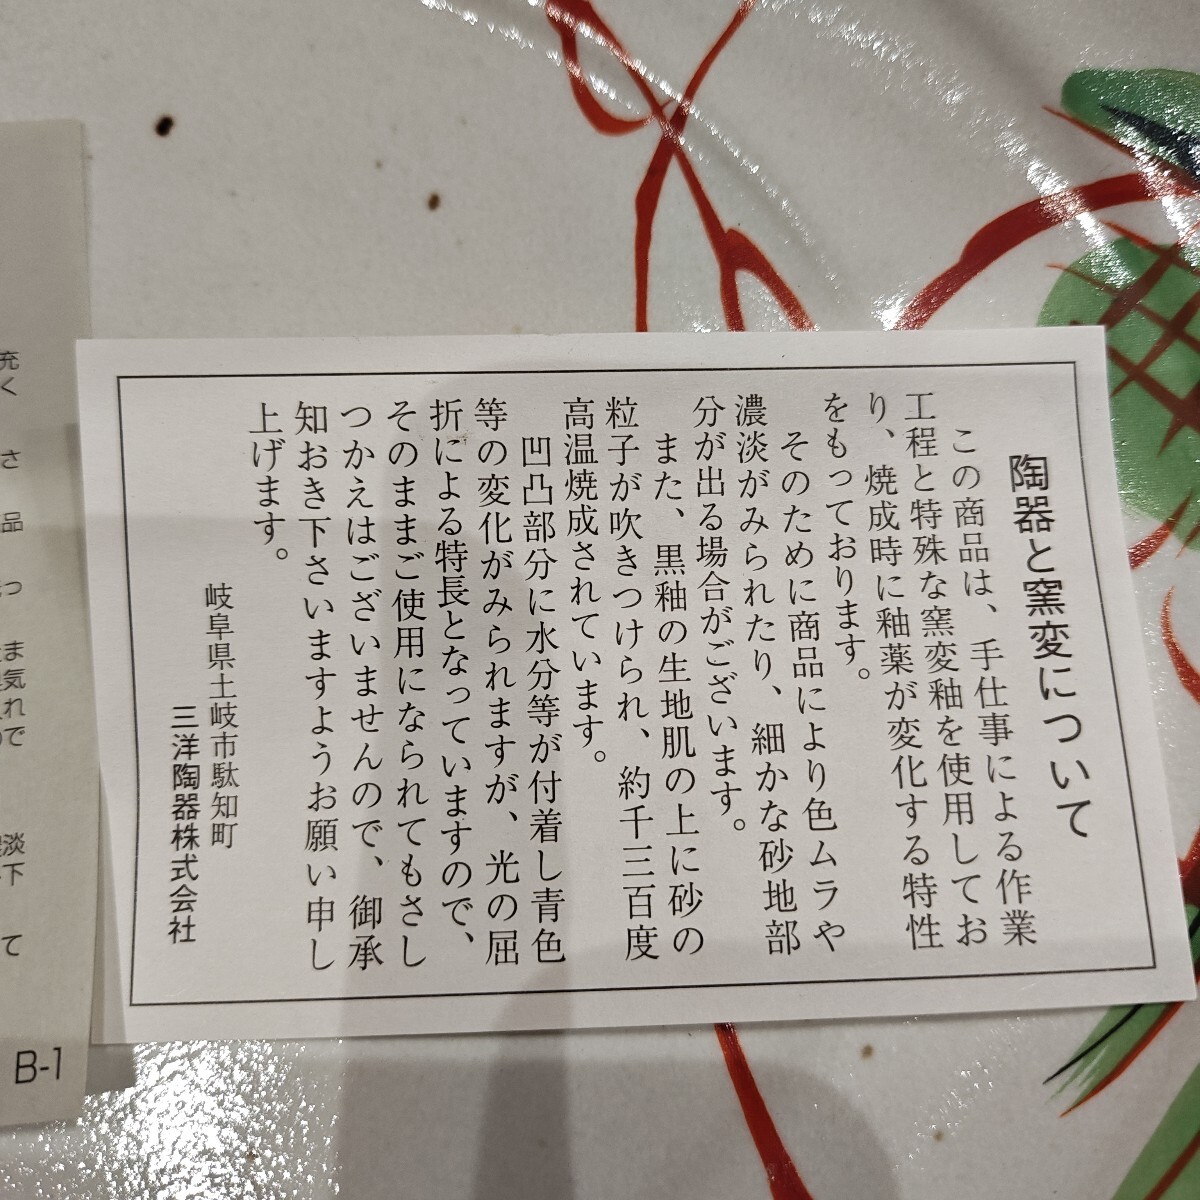 陶器と窯変について
この商品は、手仕事による作業
工程と特殊な窯変釉を使用してお
り、焼成時に釉薬が変化する特性
をもっております。
そのために商品により色ムラや
濃淡がみられたり、細かな砂地部
分が出る場合がございます。
また、黒釉の生地肌の上に砂の
粒子が吹きつけられ、約千三百度
高温焼成されています。
凹凸部分に水分等が付着し青色
等の変化がみられますが、光の屈
折による特長となっていますので、
そのままご使用になられてもさし
つかえはございませんので、御承
知おき下さいますようお願い申し
上げます。
岐阜県土岐市駄知町
三洋陶器株式会社
充
く
さ
品
っ
ま
気
れ
で
淡
下
て
B-1